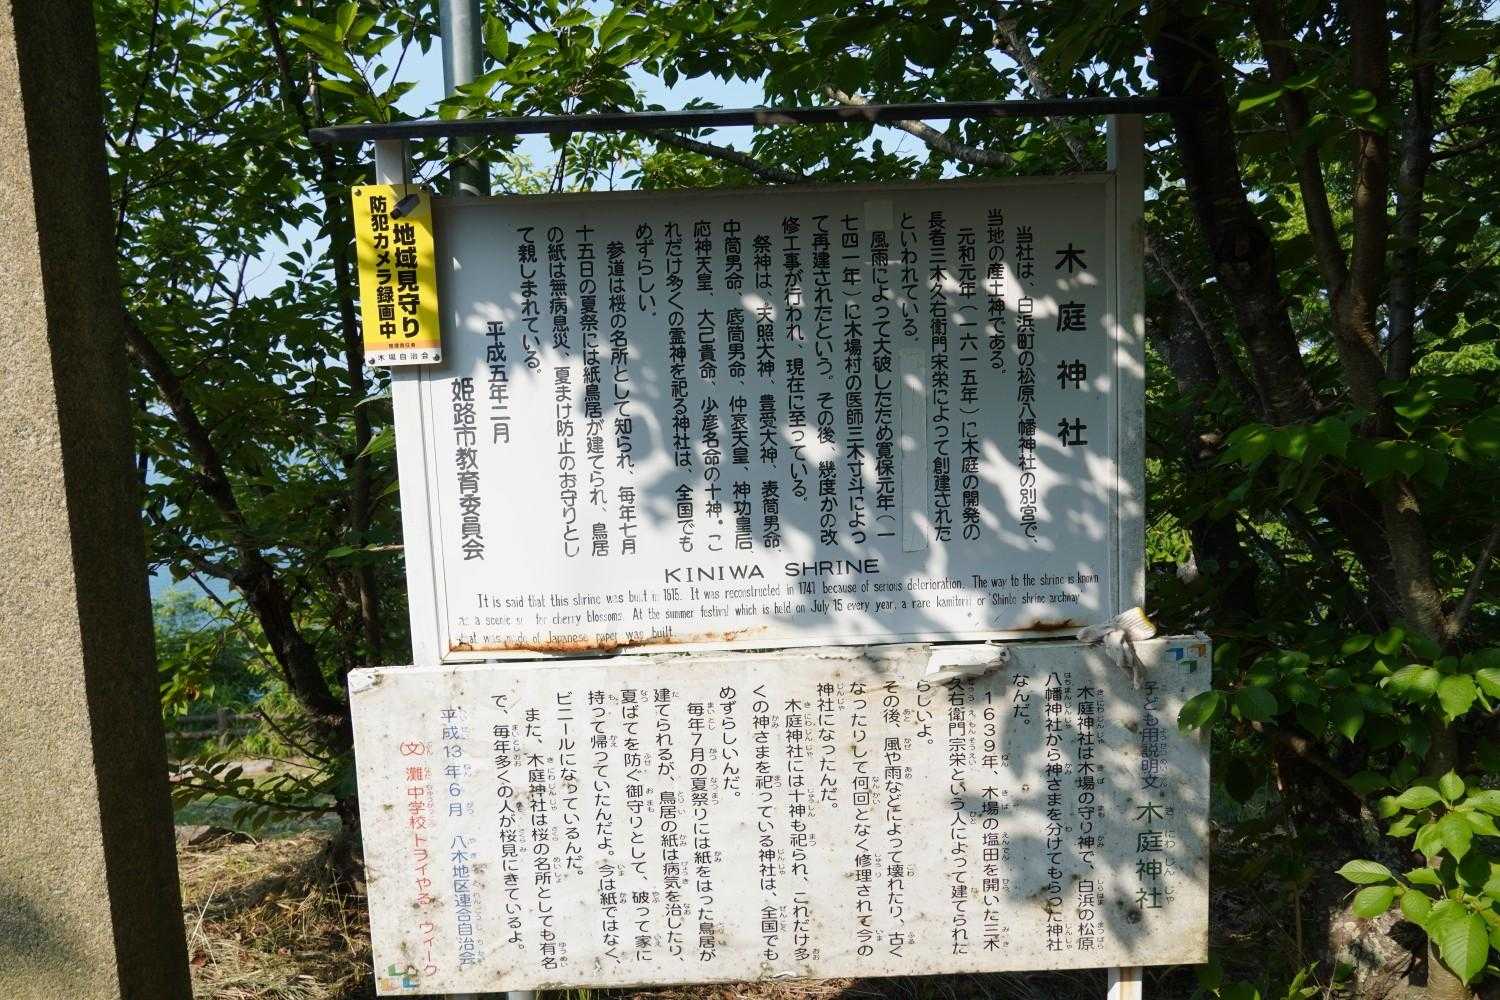 木庭神社
当社は、白浜町の松原八幡神社の別宮で、
当地の産土神である。
元和元年（一六一五年）に木庭の開発の
長者三木久右衛門宋栄によって創建された
といわれている。
風雨によって大破したため寛保元年（一
七四一年）に木場村の医師三木寸斗によっ
て再建されたという。その後、幾度かの改
修工事が行われ、現在に至っている。
祭神は、天照大神、豊受大神、表筒男命、
中筒男命、底筒男命、仲哀天皇、神功皇后、
応神天皇、大己貴命、少彦名命の十神。こ
れだけ多くの霊神を祀る神社は、全国でも
めずらしい。
参道は桜の名所として知られ、毎年七月
十五日の夏祭には紙鳥居が建てられ、鳥居
の紙は無病息災、夏まけ防止のお守りとし
て親しまれている。
平成五年二月
姫路市教育委員会
KINIWA SHRINE
It is said that this shrine was built in 1615. It was reconstructed in 1741 because of serious deterioration. The way to the shrine is known
as a scenic for cherry blossoms. At the summer festival which is held on July 15 every year, a rare kamitorii or 'Shinto shrine archway'
that was made of Japanese paper was built.
地域見守り
防犯カメラ録画中
木場自治会
子ども用説明文 木庭神社
木庭神社は木場の守り神で、白浜の松原
八幡神社から神さまを分けてもらった神社
なんだ。
1639年、木場の塩田を開いた三木
久右衛門宗栄という人によって建てられた
らしいよ。
その後、風や雨などによって壊れたり、古く
なったりして何回となく修理されて今の
神社になったんだ。
木庭神社には十神も祀られ、これだけ多
くの神さまを祀っている神社は、全国でも
めずらしいんだ。
毎年7月の夏祭りには紙をはった鳥居が
建てられるが、鳥居の紙は病気を治したり、
夏ばてを防ぐ御守りとして、破って家に
持って帰っていたんだよ。今は紙ではなく、
ビニールになっているんだ。
また、木庭神社は桜の名所としても有名
で、毎年多くの人が桜見にきているよ。
平成13年6月 八木地区連合自治会
(文) 灘中学校トライやる・ウィーク